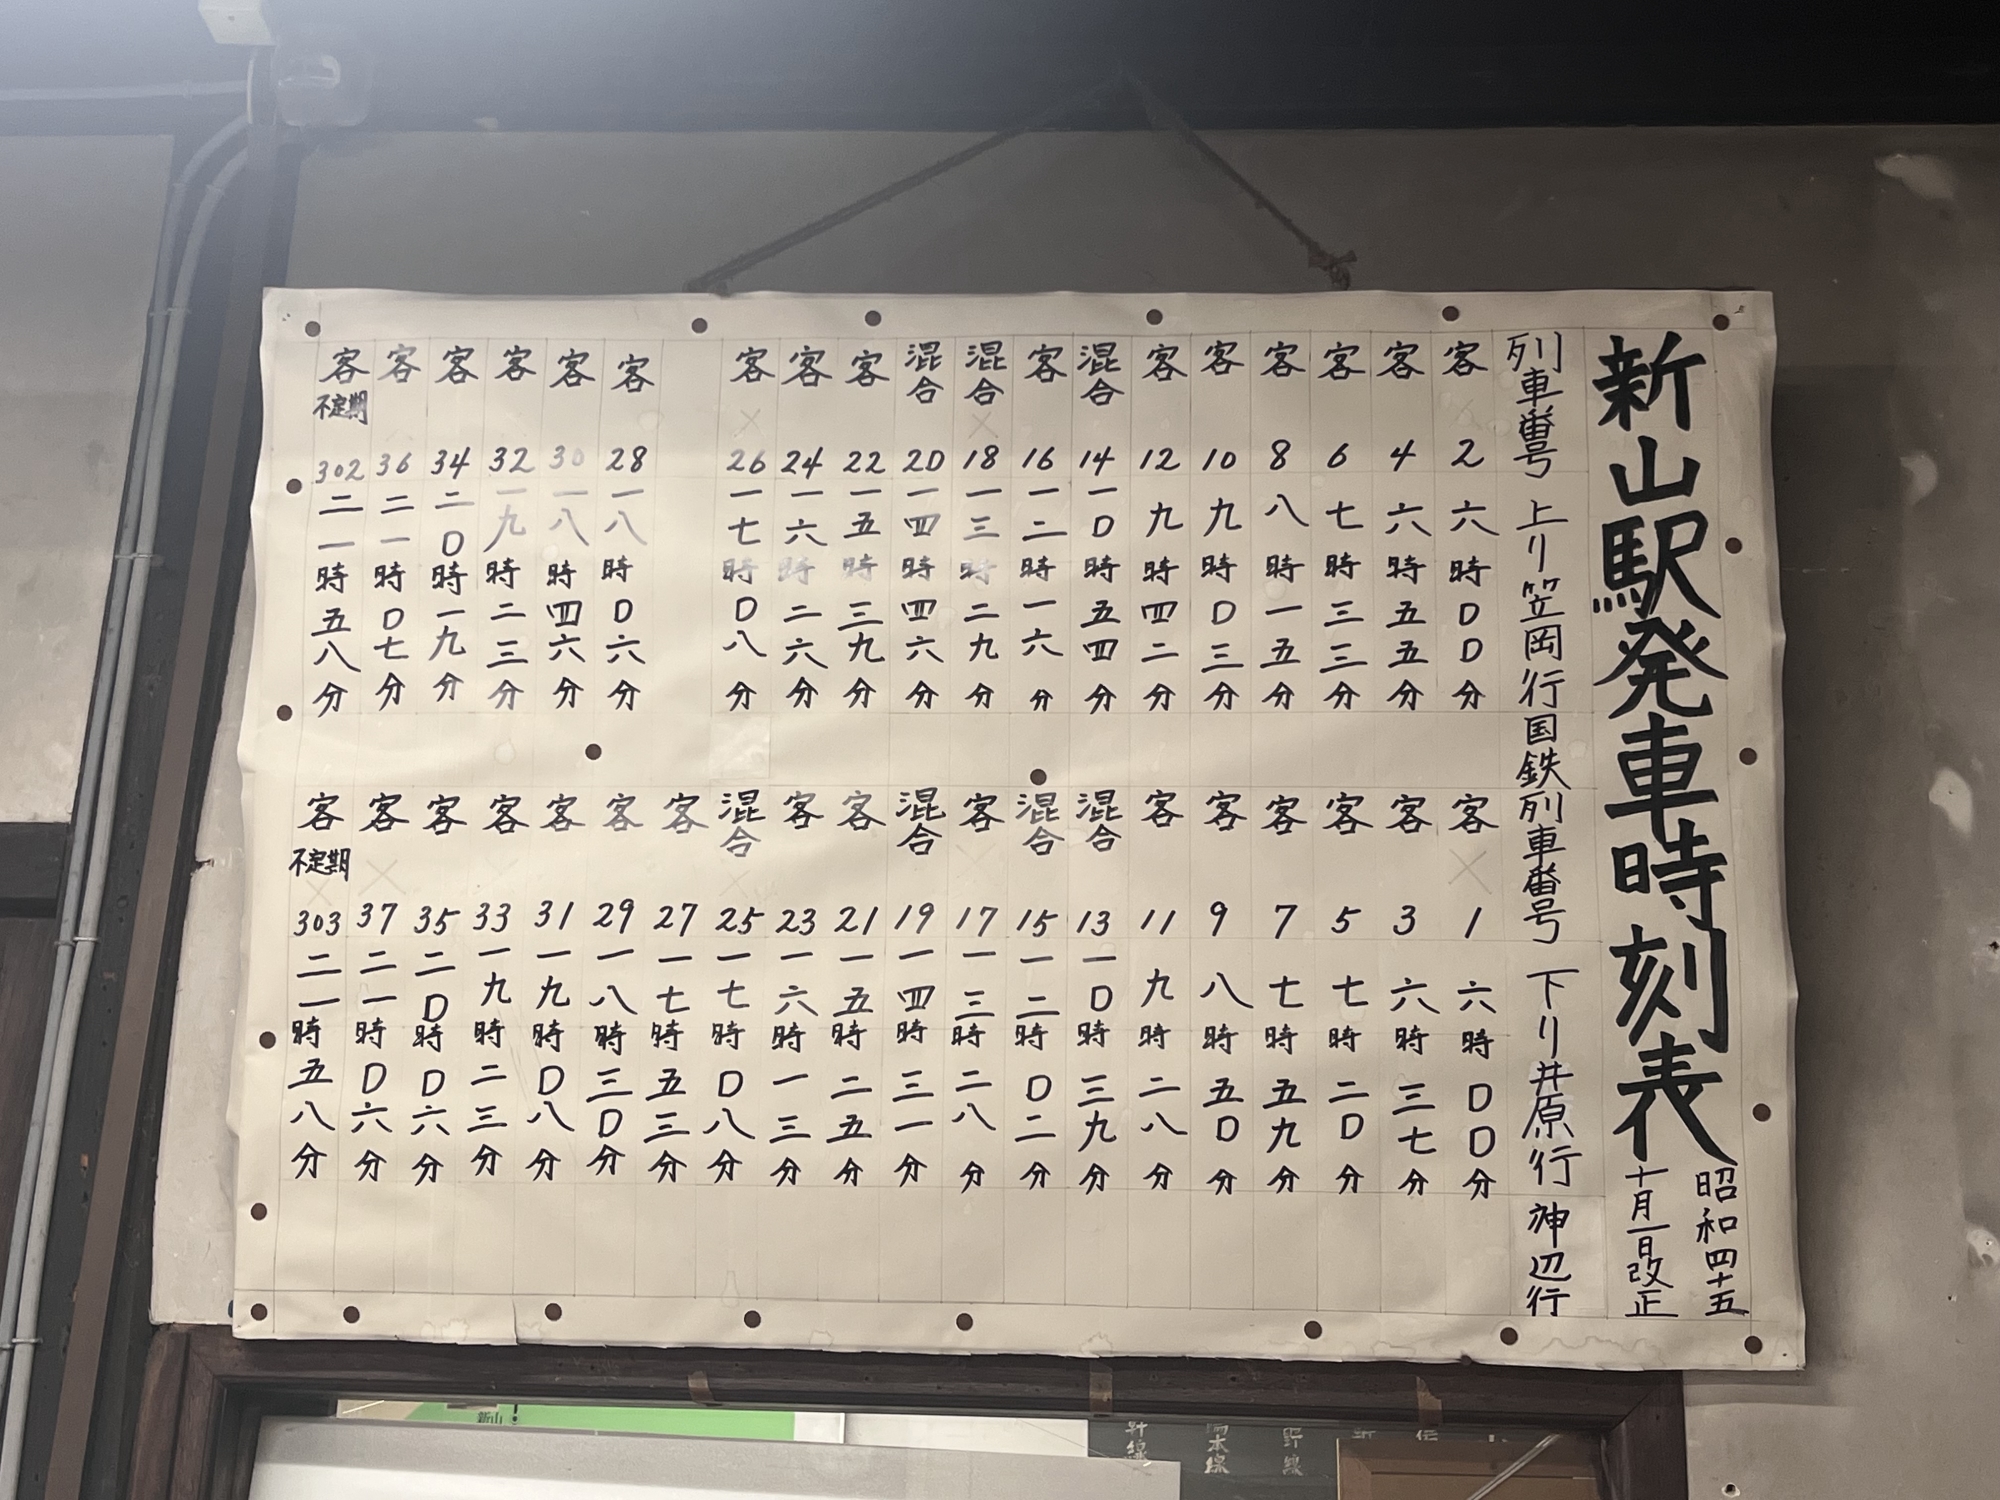 新山駅発車時刻表
昭和四十五
十月一日改正
列車番号 上り笠岡行 国鉄
列車番号 下り井原行 神辺行
客 2 六時〇〇分
客 4 六時五五分
客 6 七時三三分
客 8 八時一五分
客 10 九時〇三分
客 12 九時四二分
混合 14 一〇時五四分
客 16 一二時一六分
混合 18 一三時二九分
混合 20 一四時四六分
客 22 一五時三九分
客 24 一六時二六分
客 26 一七時〇八分
客 28 一八時〇六分
客 30 一八時四六分
客 32 一九時二三分
客 34 二〇時一九分
客 36 二一時〇七分
客 不定期 302 二一時五八分
客 1 六時〇〇分
客 3 六時三七分
客 5 七時二〇分
客 7 七時五九分
客 9 八時五〇分
客 11 九時二八分
混合 13 一〇時三九分
混合 15 一二時〇二分
客 17 一三時二八分
混合 19 一四時三一分
客 21 一五時二五分
客 23 一六時一三分
混合 25 一七時〇八分
客 27 一七時五三分
客 29 一八時三〇分
客 31 一九時〇八分
客 33 一九時二三分
客 35 二〇時〇六分
客 37 二一時〇六分
客 不定期 303 二一時五八分
新山